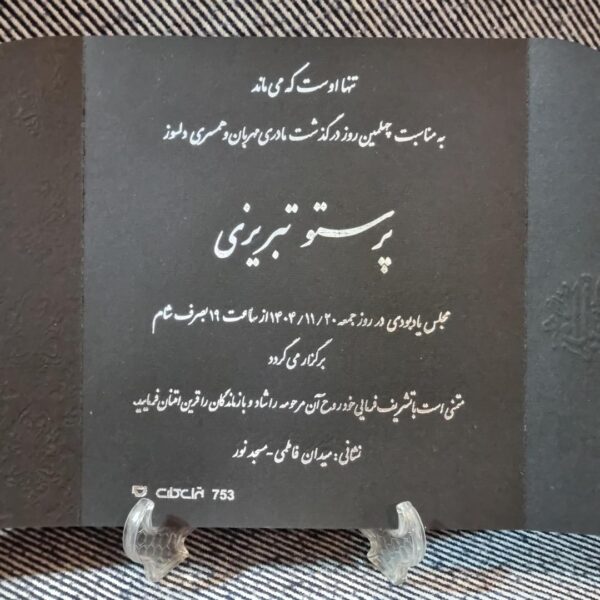 تنها اوست که می ماند
به مناسبت چهلمین روز درگذشت مادری مهربان و همسری دلسوز
پرستو تبریزی
مجلس یادبودی در روز جمعه ۱۴۰۴/۱۱/۲۰ از ساعت ۱۹ بصرف شام
برگزار می گردد
متمنی است با تشریف فرمایی خود روح آن مرحومه را شاد و بازماندگان را قرین امتنان فرمایید.
نشانی: میدان فاطمی - مسجد نور
753